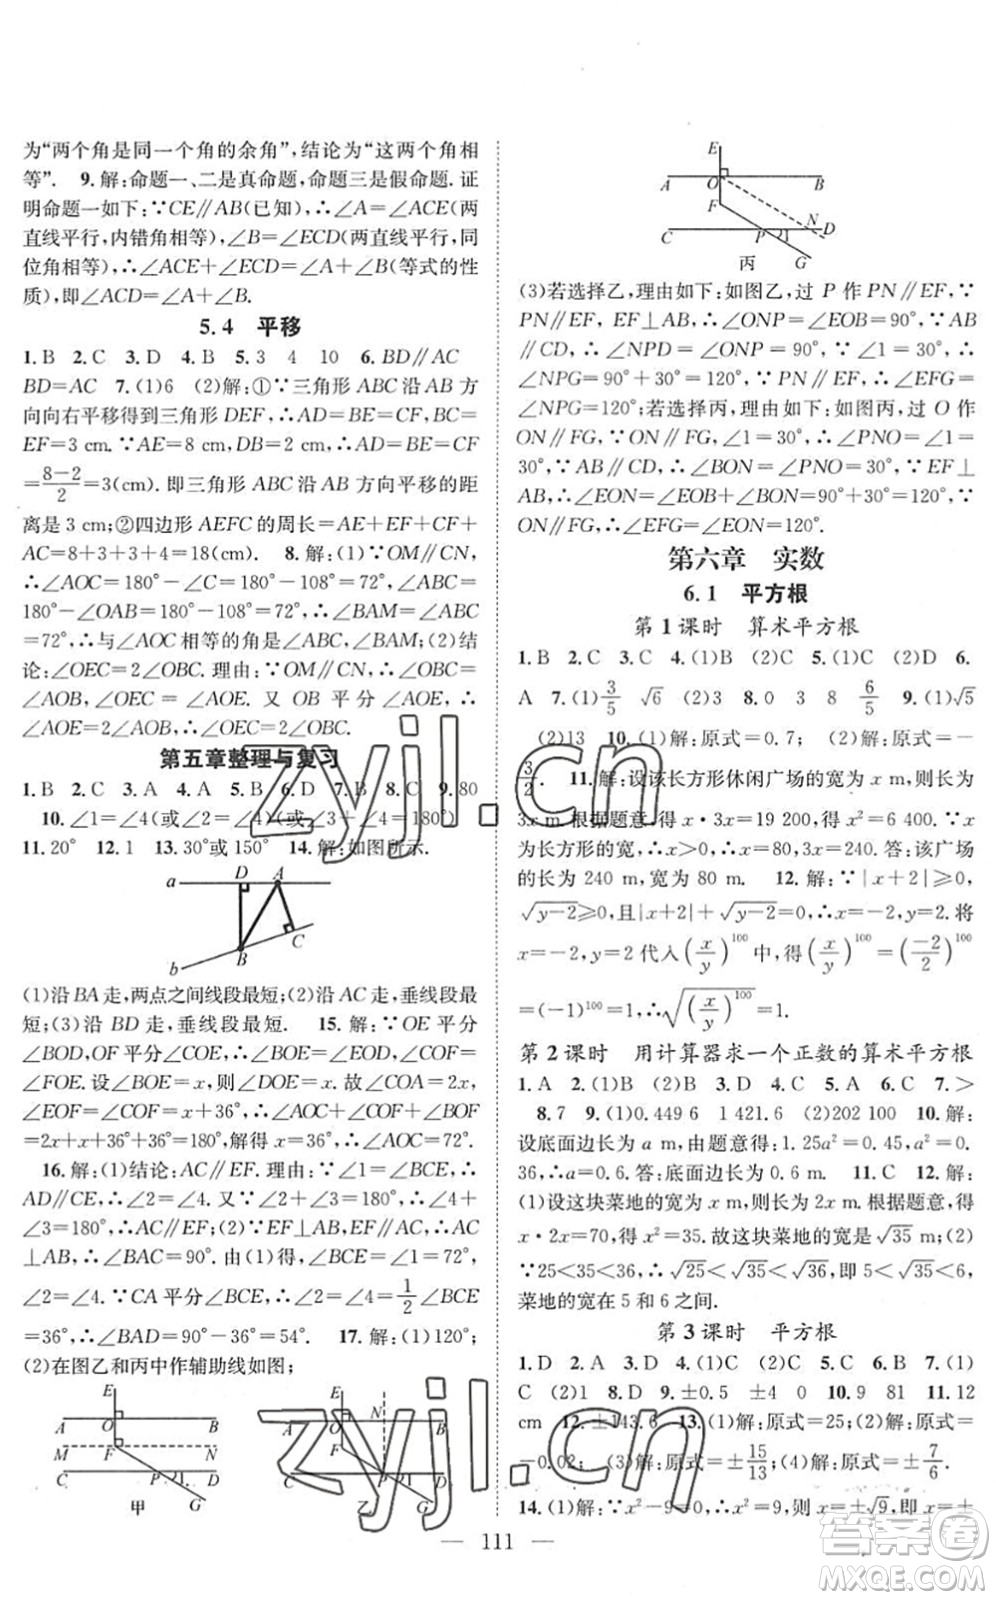 为“两个角是同一个角的余角”,结论为“这两个角相
等”. 9.解:命题一、二是真命题,命题三是假命题.证
明命题一如下:∵CE∥AB(已知),∴∠A=∠ACE(两
直线平行,内错角相等),∠B=∠ECD(两直线平行,同
位角相等),∴∠ACE+∠ECD=∠A+∠B(等式的性
质),即∠ACD=∠A+∠B.
5.4 平移
1.B 2.C 3.D 4.B 5.3 4 10 6.BD∥AC
BD=AC 7.(1)6 (2)解:①∵三角形 ABC 沿 AB 方
向向右平移得到三角形 DEF,∴AD=BE=CF,BC=
EF=3 cm.∵AE=8 cm,DB=2 cm,∴AD=BE=CF
=(8-2)/2=3(cm).即三角形 ABC 沿 AB 方向平移的距
离是 3 cm;②四边形 AEFC 的周长=AE+EF+CF+
AC=8+3+3+4=18(cm). 8.解:(1)∵OM∥CN,
∴∠AOC=180°-∠C=180°-108°=72°,∠OAB=
180°-∠OAB=180°-108°=72°,∴∠BAM=∠OAB
=72°,∴与∠AOC 相等的角是∠ABC,∠BAM;(2)结
论:∠OEC=2∠OBC.理由:∵OM∥CN,∴∠OBC=
∠AOB,∠OEC=∠AOE.又 OB 平分∠AOE,∴∠AOE=
2∠AOB,∴∠OEC=2∠OBC.
第五章整理与复习
1.B 2.D 3.A 4.A 5.B 6.D 7.B 8.C 9.80
10.∠1=∠4(或∠2=∠4)(或∠3+∠4=180°)
11.20° 12.1 13.30°或 150° 14.解:如图所示.
D A
a
C
B
b
(1)沿 BA 走,两点之间线段最短;(2)沿 AC 走,垂线段最
短;(3)沿 BD 走,垂线段最短. 15.解:∵OE 平分
∠BOD,OF 平分∠COE,∴∠BOE=∠DOE,∠COF=
∠FOE.设∠BOE=x,则∠DOE=x.故∠COA=2x,
∠EOF=∠COF=x+36°,∴∠AOC+∠COF+∠BOF=
2x+x+36°+36°=180°,解得 x=36°,∴∠AOC=72°.
16.解:(1)结论:AC∥EF.理由:∵∠1=∠BCE,∴
AD∥CE,∴∠2=∠4.又∵∠2+∠3=180°,∴∠4+
∠3=180°,∴AC∥EF;(2)∵AC∥EF,EF⊥AB,∴AC
⊥AB,∴∠BAC=90°.由(1)得,∠BCE=∠1=72°,
∠2=∠4.∵CA 平分∠BCE,∴∠2=∠4=1/2∠BCE
=36°,∴∠BAD=90°-36°=54°. 17.解:(1)120°;
(2)在图乙和丙中作辅助线如图;
E
A O B
M F N
C P D
G
甲
E
N
A O B
F
C P D
G
乙
E
A O B
F
N
C P D
G
丙
(3)若选择乙,理由如下:如图乙,过 P 作 PN∥EF,∵
PN∥EF,EF⊥AB,∴∠ONP=∠EOB=90°,∵AB∥CD,
∴∠NPD=∠ONP=90°,∵∠1=30°,∴
∠NPG=90°+30°=120°,∵PN∥EF,∴∠EFG=
∠NPG=120°;若选择丙,理由如下:如图丙,过 O 作
ON∥FG,∵ON∥FG,∠1=30°,∴∠PNO=∠1=
30°,∵AB∥CD,∴∠BON=∠PNO=30°,∵EF⊥
AB,∴∠EOB=90°,∴∠EON=∠EOB+∠BON=90°+30°=120°,∵
ON∥FG,∴∠EFG=∠EON=120°.
第六章 实数
6.1 平方根
第 1 课时 算术平方根
1.B 2.C 3.C 4.(1)B (2)C 5.(1)C (2)D 6.
A 7.(1)3/5 √6 (2)3 8.0 3 8 6/5 9.(1)√5
(2)13 10.(1)解:原式=0.7; (2)解:原式=-
3/2. 11.解:设该长方形休闲广场的宽为 x m,则长为
3x m.根据题意,得 x·3x=19 200,得 x²=6 400.∵x
为长方形的宽,∴x>0,∴x=80,3x=240.答:该广场
的长为 240 m,宽为 80 m. 12.解:∵|x+2|≥0,
√(y-2)≥0,且|x+2|+√(y-2)=0,∴x=-2,y=2.将
x=-2,y=2 代入(x/y)¹⁰⁰中,得(x/y)¹⁰⁰=(-2/2)¹⁰⁰
=(-1)¹⁰⁰=1,∴√((x/y)¹⁰⁰)=√1=1.
第 2 课时 用计算器求一个正数的算术平方根
1.A 2.(1)B (2)B 3.D 4.D 5.C 6.C 7.>
8.7 9.(1)0.449 6 1 421.6 (2)202 100 10.解:
设底面边长为 a m,由题意得:1.25a²=0.45,a²=0.
36,∴a=0.6.答:底面边长为 0.6 m. 11.C 12.解:
(1)设这块菜地的宽为 x m,则长为 2x m.根据题意,得
x·2x=70,得 x²=35.故这块菜地的宽是√35 m;(2)
∵25<35<36,∴√25<√35<√36,即 5<√35<6,
菜地的宽在 5 和 6 之间.
第 3 课时 平方根
1.D 2.A 3.D 4.(1)B (2)C 5.C 6.B 7.(1)
C (2)1 8.D 9.±0.5 ±4 0 10.9 81 11.12
cm 12.±143.6 13.(1)解:原式=25;(2)解:原式=
-0.02; (3)解:原式=±15/13;(4)解:原式=±7/6.
14.(1)解:∵x²-9=0,∴x²=9,则 x=±√9,即 x=±
— 111 —
zyjl.cn
zyjl.cn
答案圈
MXQE.COM